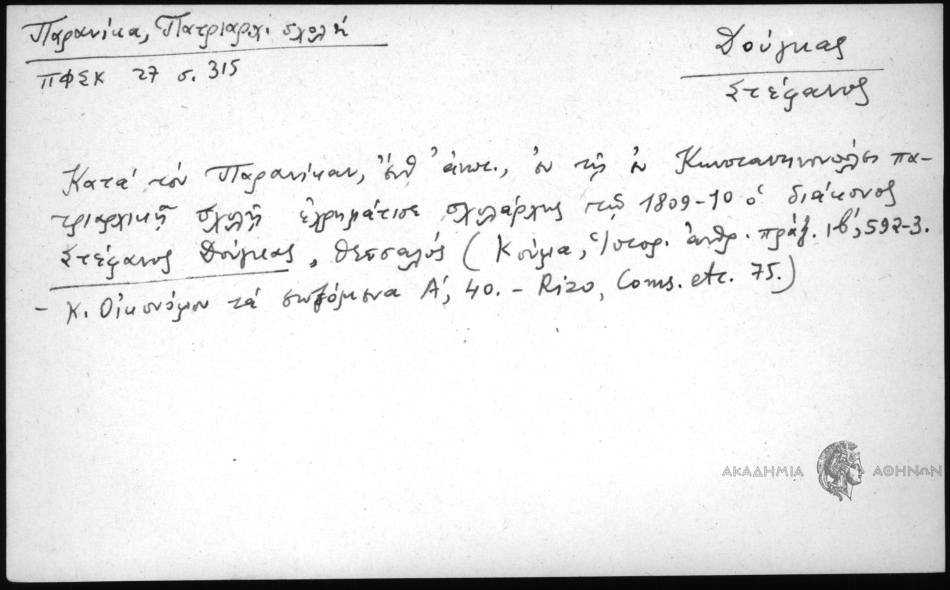 Παρανίκα, Πατριαρχ. σχολή
ΠΦΣΚ 27 σ. 315
Δούγκας
Στέφανος
Κατά τόν Παρανίκαν, ἔνθ' ἀνωτ., ἐν τῇ ἐν Κωνσταντινουπόλει πα-
τριαρχικῇ σχολῇ ἐχρημάτισε σχολάρχης τῷ 1809-10 ὁ διάκονος
Στέφανος Δούγκας, Θεσσαλός (Κούμα, Ἱστορ. ἀνθρ. πράξ. ιβ', 592-3.
- Κ. Οἰκονόμου τά σωζόμενα Α', 40. - Rizo, Coms. etc. 75.)
ΑΚΑΔΗΜΙΑ ΑΘΗΝΩΝ